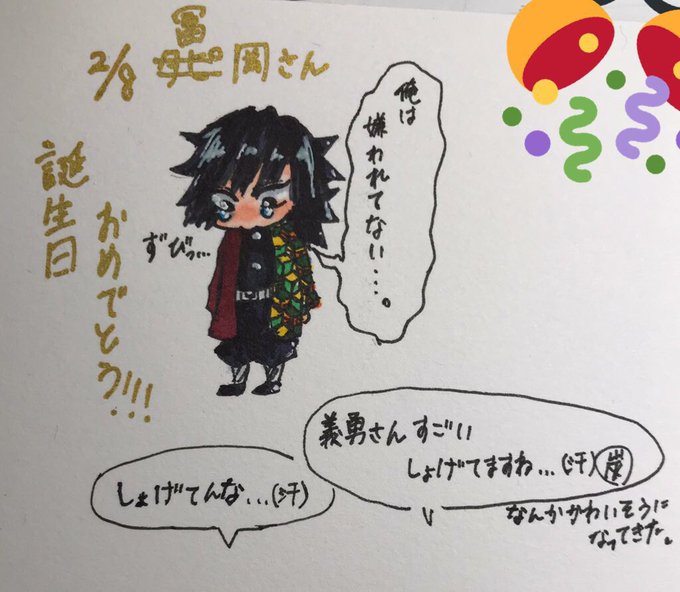 2/8 冨岡さん
誕生日
おめでとう!!!
俺は
嫌われてない・・・。
ずびっ…
義勇さんすごい
しょげてますね…(汗)
しょげてんな…(汗)
なんかかわいそうに
なってきた。